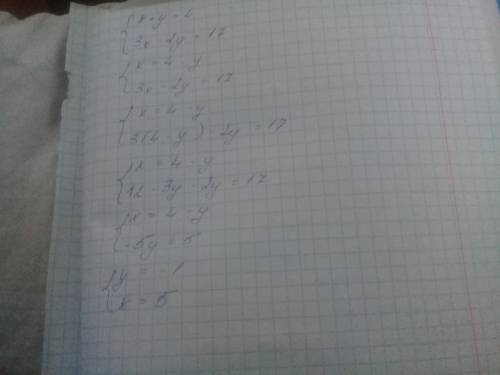 {x + y = 4
{3x - 2y = 17
{x = 4 - y
{3x - 2y = 17
{x = 4 - y
{3(4 - y) - 2y = 17
{x = 4 - y
{12 - 3y - 2y = 17
{x = 4 - y
{-5y = 5
{y = -1
{x = 5